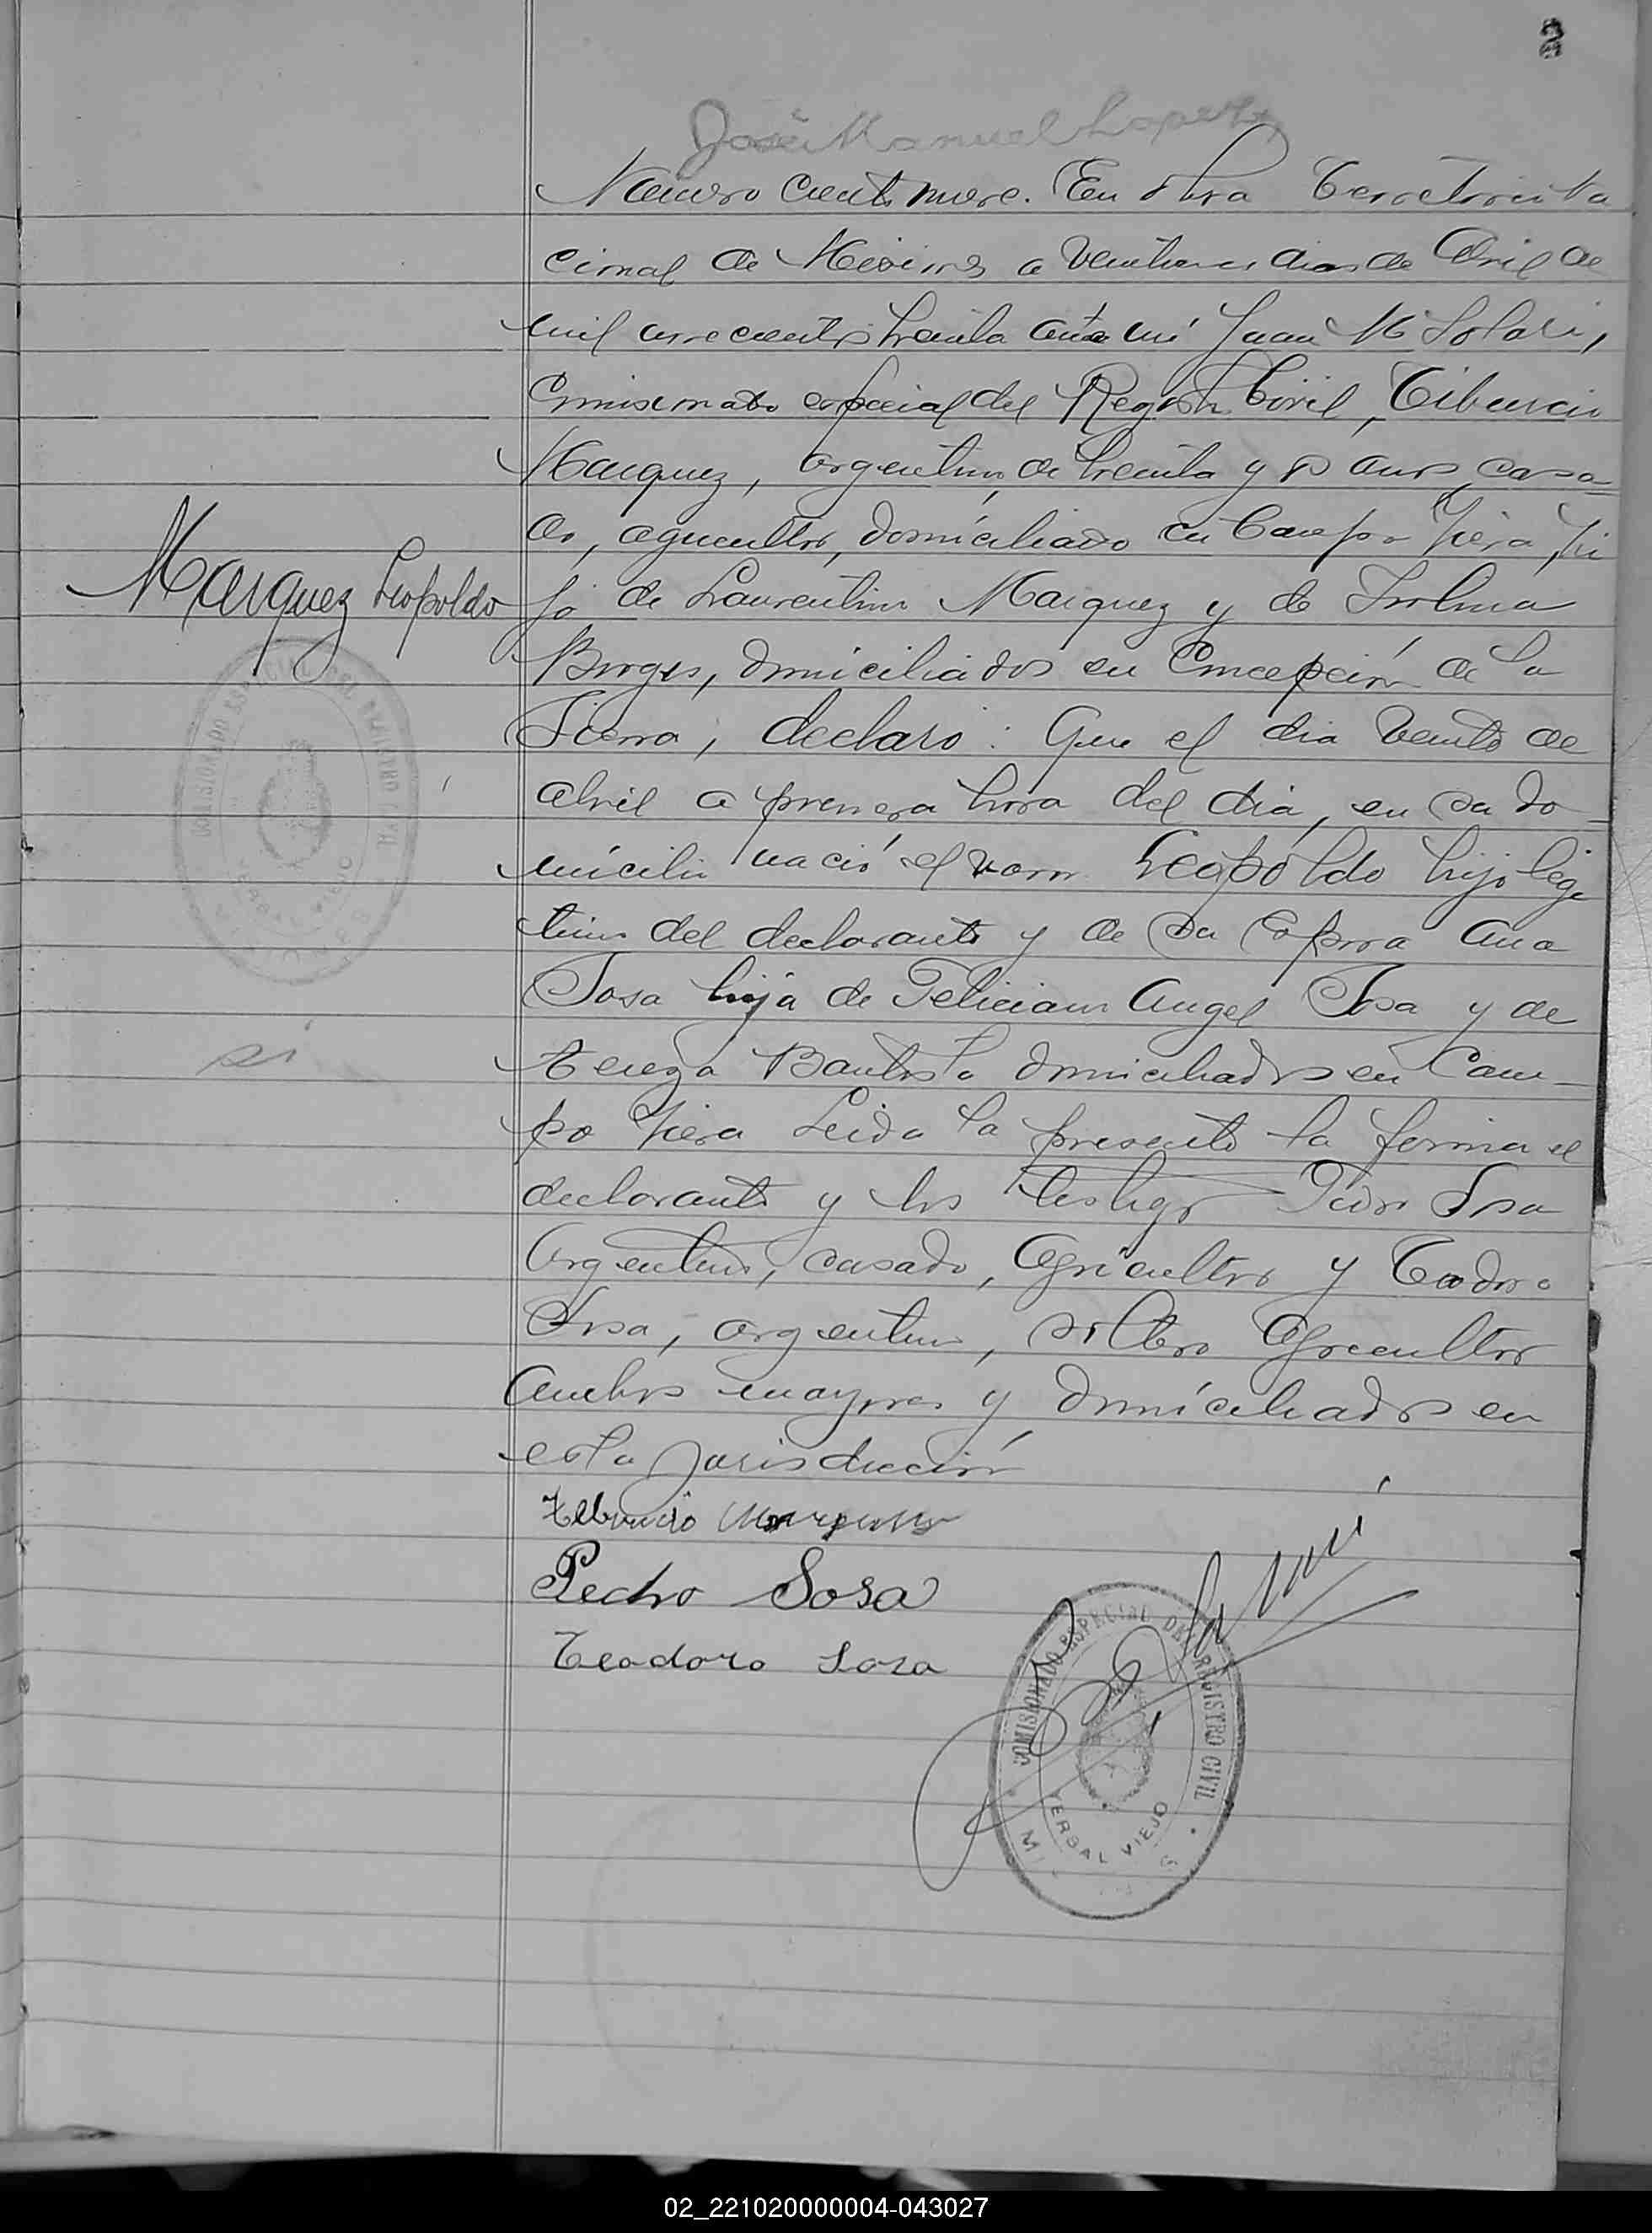 2
José Manuel Lopez
Número ciento nueve. En Obra Territorio Na
cional de Misiones a veintitres dias de Abril de
mil novecientos treinta ante mi Juan M Solari,
Comisionado especial del Registro Civil, Tiburcio
Marquez, argentino, de treinta y años, casa-
do, agricultor, domiciliado en Campo Viera, hi
jo de Laurentino Marquez y de
Borges, domiciliados en Concepción de la
Sierra, declaró: Que el dia veinte de
abril a primera hora del dia, en su do-
micilio nació el varon Leopoldo hijo legi
timo del declarante y de su esposa Ana
Sosa hija de Feliciano Angel Sosa y de
Tereza Bautista domiciliados en Cam-
po Viera Leida la presente la firma el
declarante y los testigos Pedro Sosa
Argentino, casado, Agricultor y Teodoro
Sosa, argentino, soltero Agricultor
Ambos mayores y domiciliados en
esta jurisdicción
Marquez Leopoldo
COMISIONADO ESPECIAL DEL REGISTRO CIVIL
YERBAL VIEJO
Tiburcio Marquez
Pedro Sosa
Teodoro Sosa
COMISIONADO ESPECIAL DEL REGISTRO CIVIL
YERBAL VIEJO
02_221020000004-043027